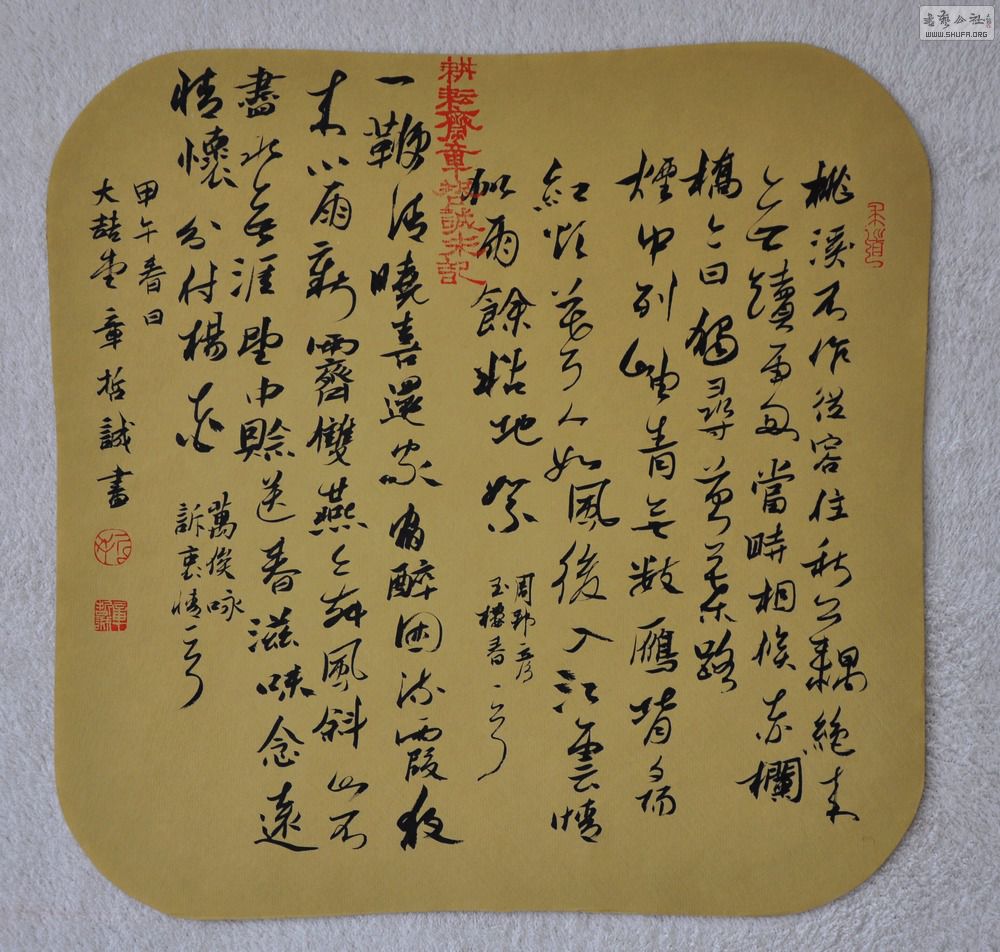 桃溪不作從容住秋藕絕來
無續處當時相候赤欄
橋今日獨尋黃葉路
煙中列岫青無數鴈背夕陽
紅欲暮人如風後入江雲情
似雨餘粘地絮
周邦彥
玉樓春一首
一鞭清曉喜還家宿醉困流霞夜
來小雨新霽雙燕舞風斜山不
盡水無涯望中賒送春滋味念遠
情懷分付楊花
萬俟咏
訴衷情一首
甲午春日
大喆堂章哲誠書
耕耘齋章哲誠朱記
書藝公社
WWW.SHUFA.ORG